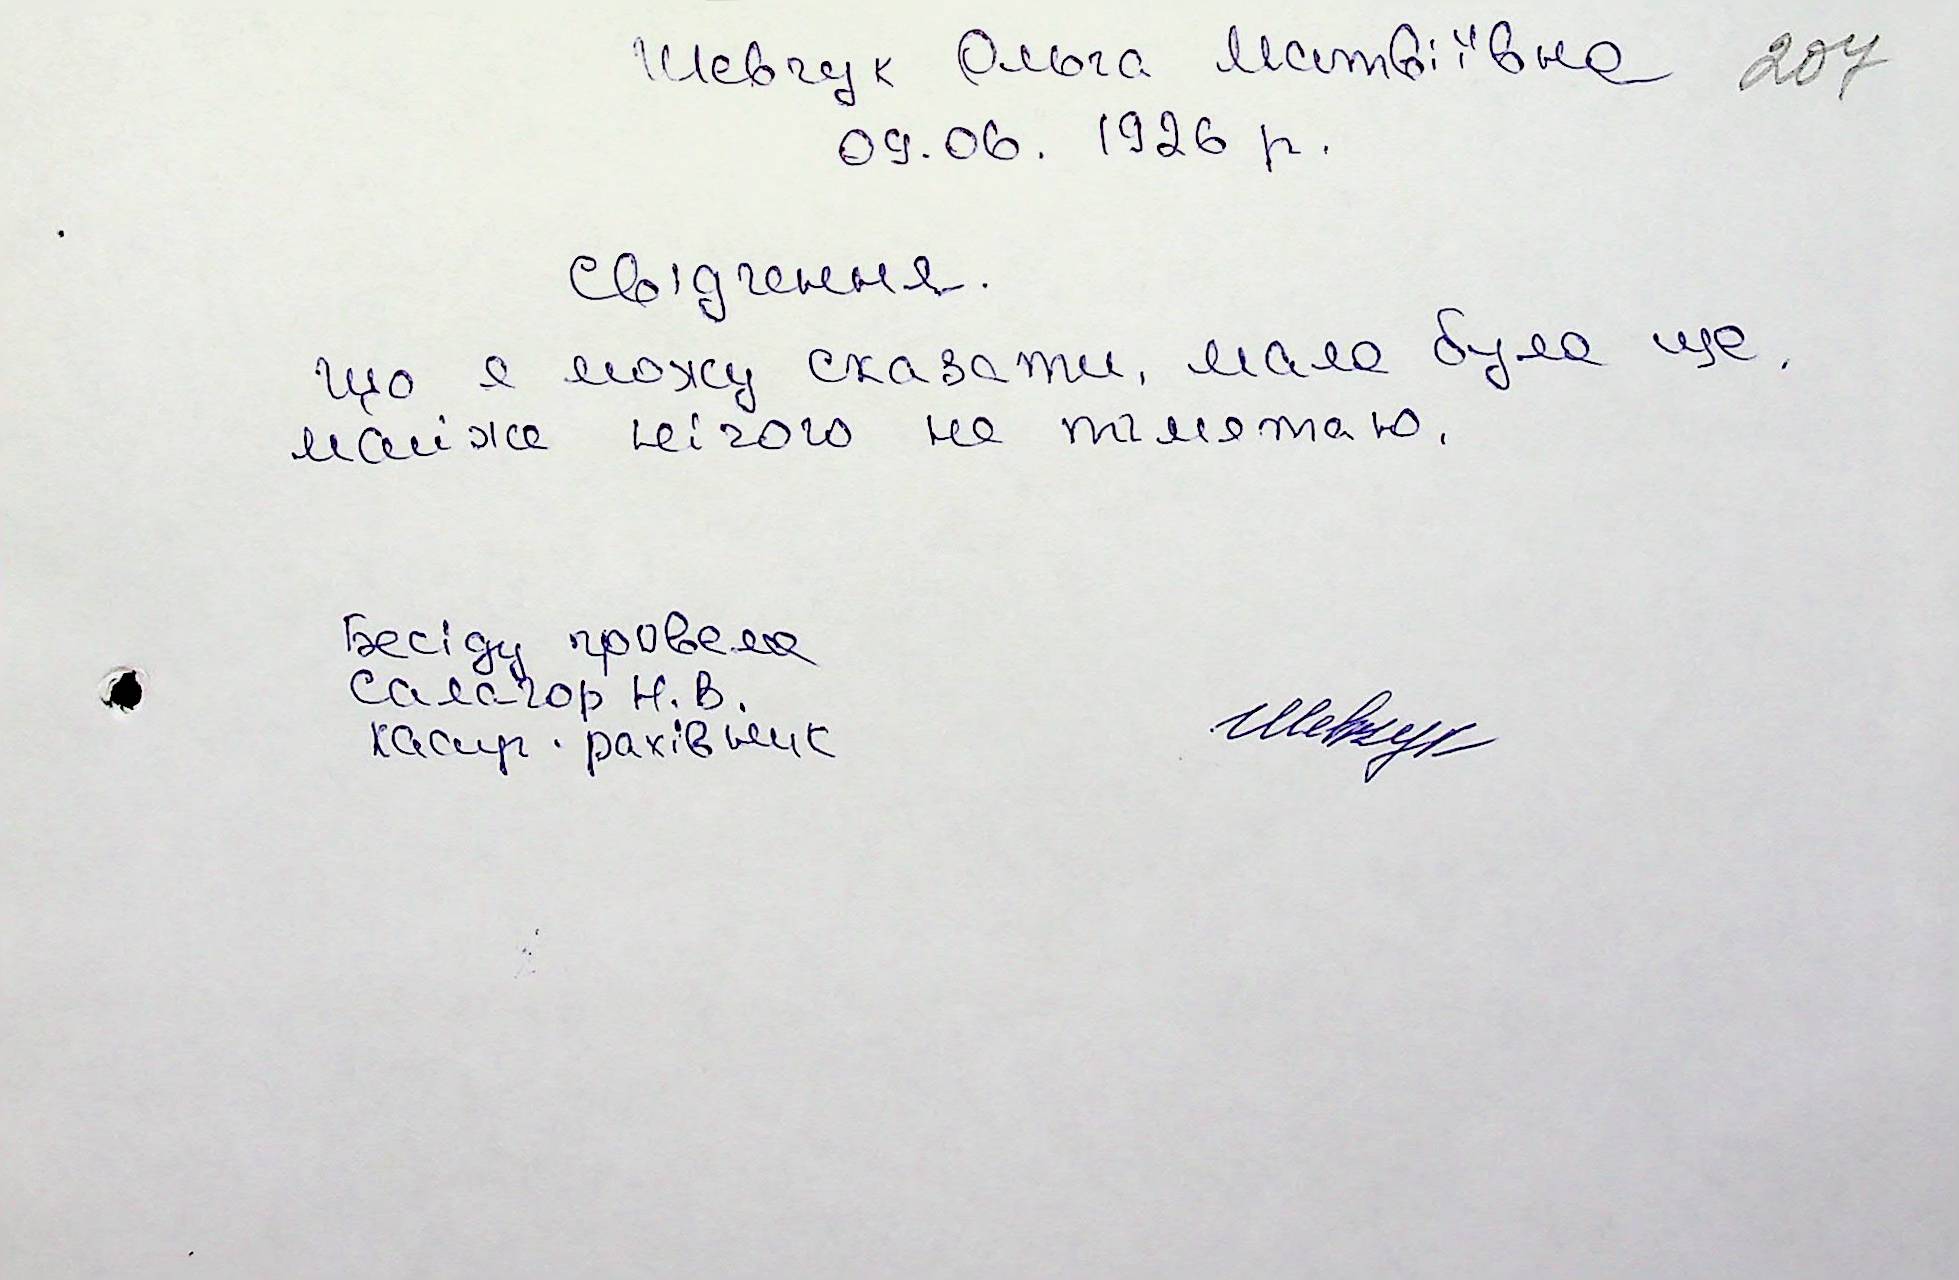 Шевчук Ольга Матвіївна 207
09.06. 1926 р.
Свідчення.
Що я можу сказати, мала була ще.
майже нічого не пімятаю.
Бесіду провела
Салагор Н.В.
касир. рахівник
Шевчук